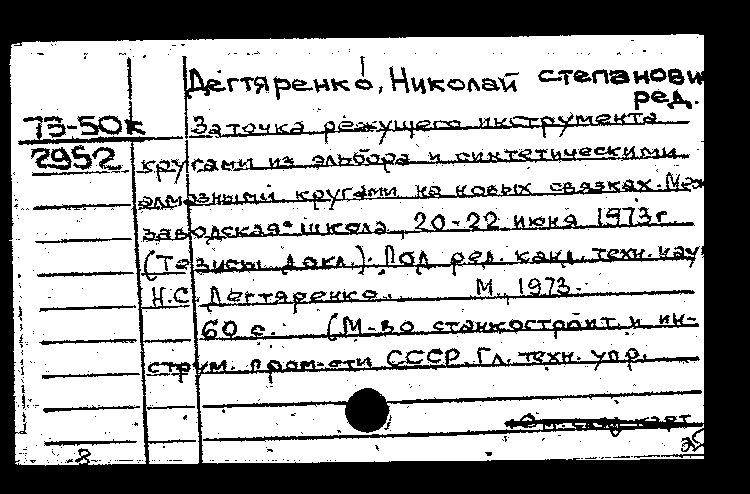 Дегтяренко, Николай Степанови
ред.
73-50к Заточка режущего инструмента
2952 кругами из эльбора и синтетическими
алмазными кругами на новых связках. Меж
заводская школа, 20-22 июня 1973г.
(Тезисы докл.). Под ред. канд. техн. наук
Н.С. Дегтяренко. М., 1973.
60 с. (М-во станкостроит. и ин-
струм. пром-сти СССР. Гл. техн. упр.
карт
8